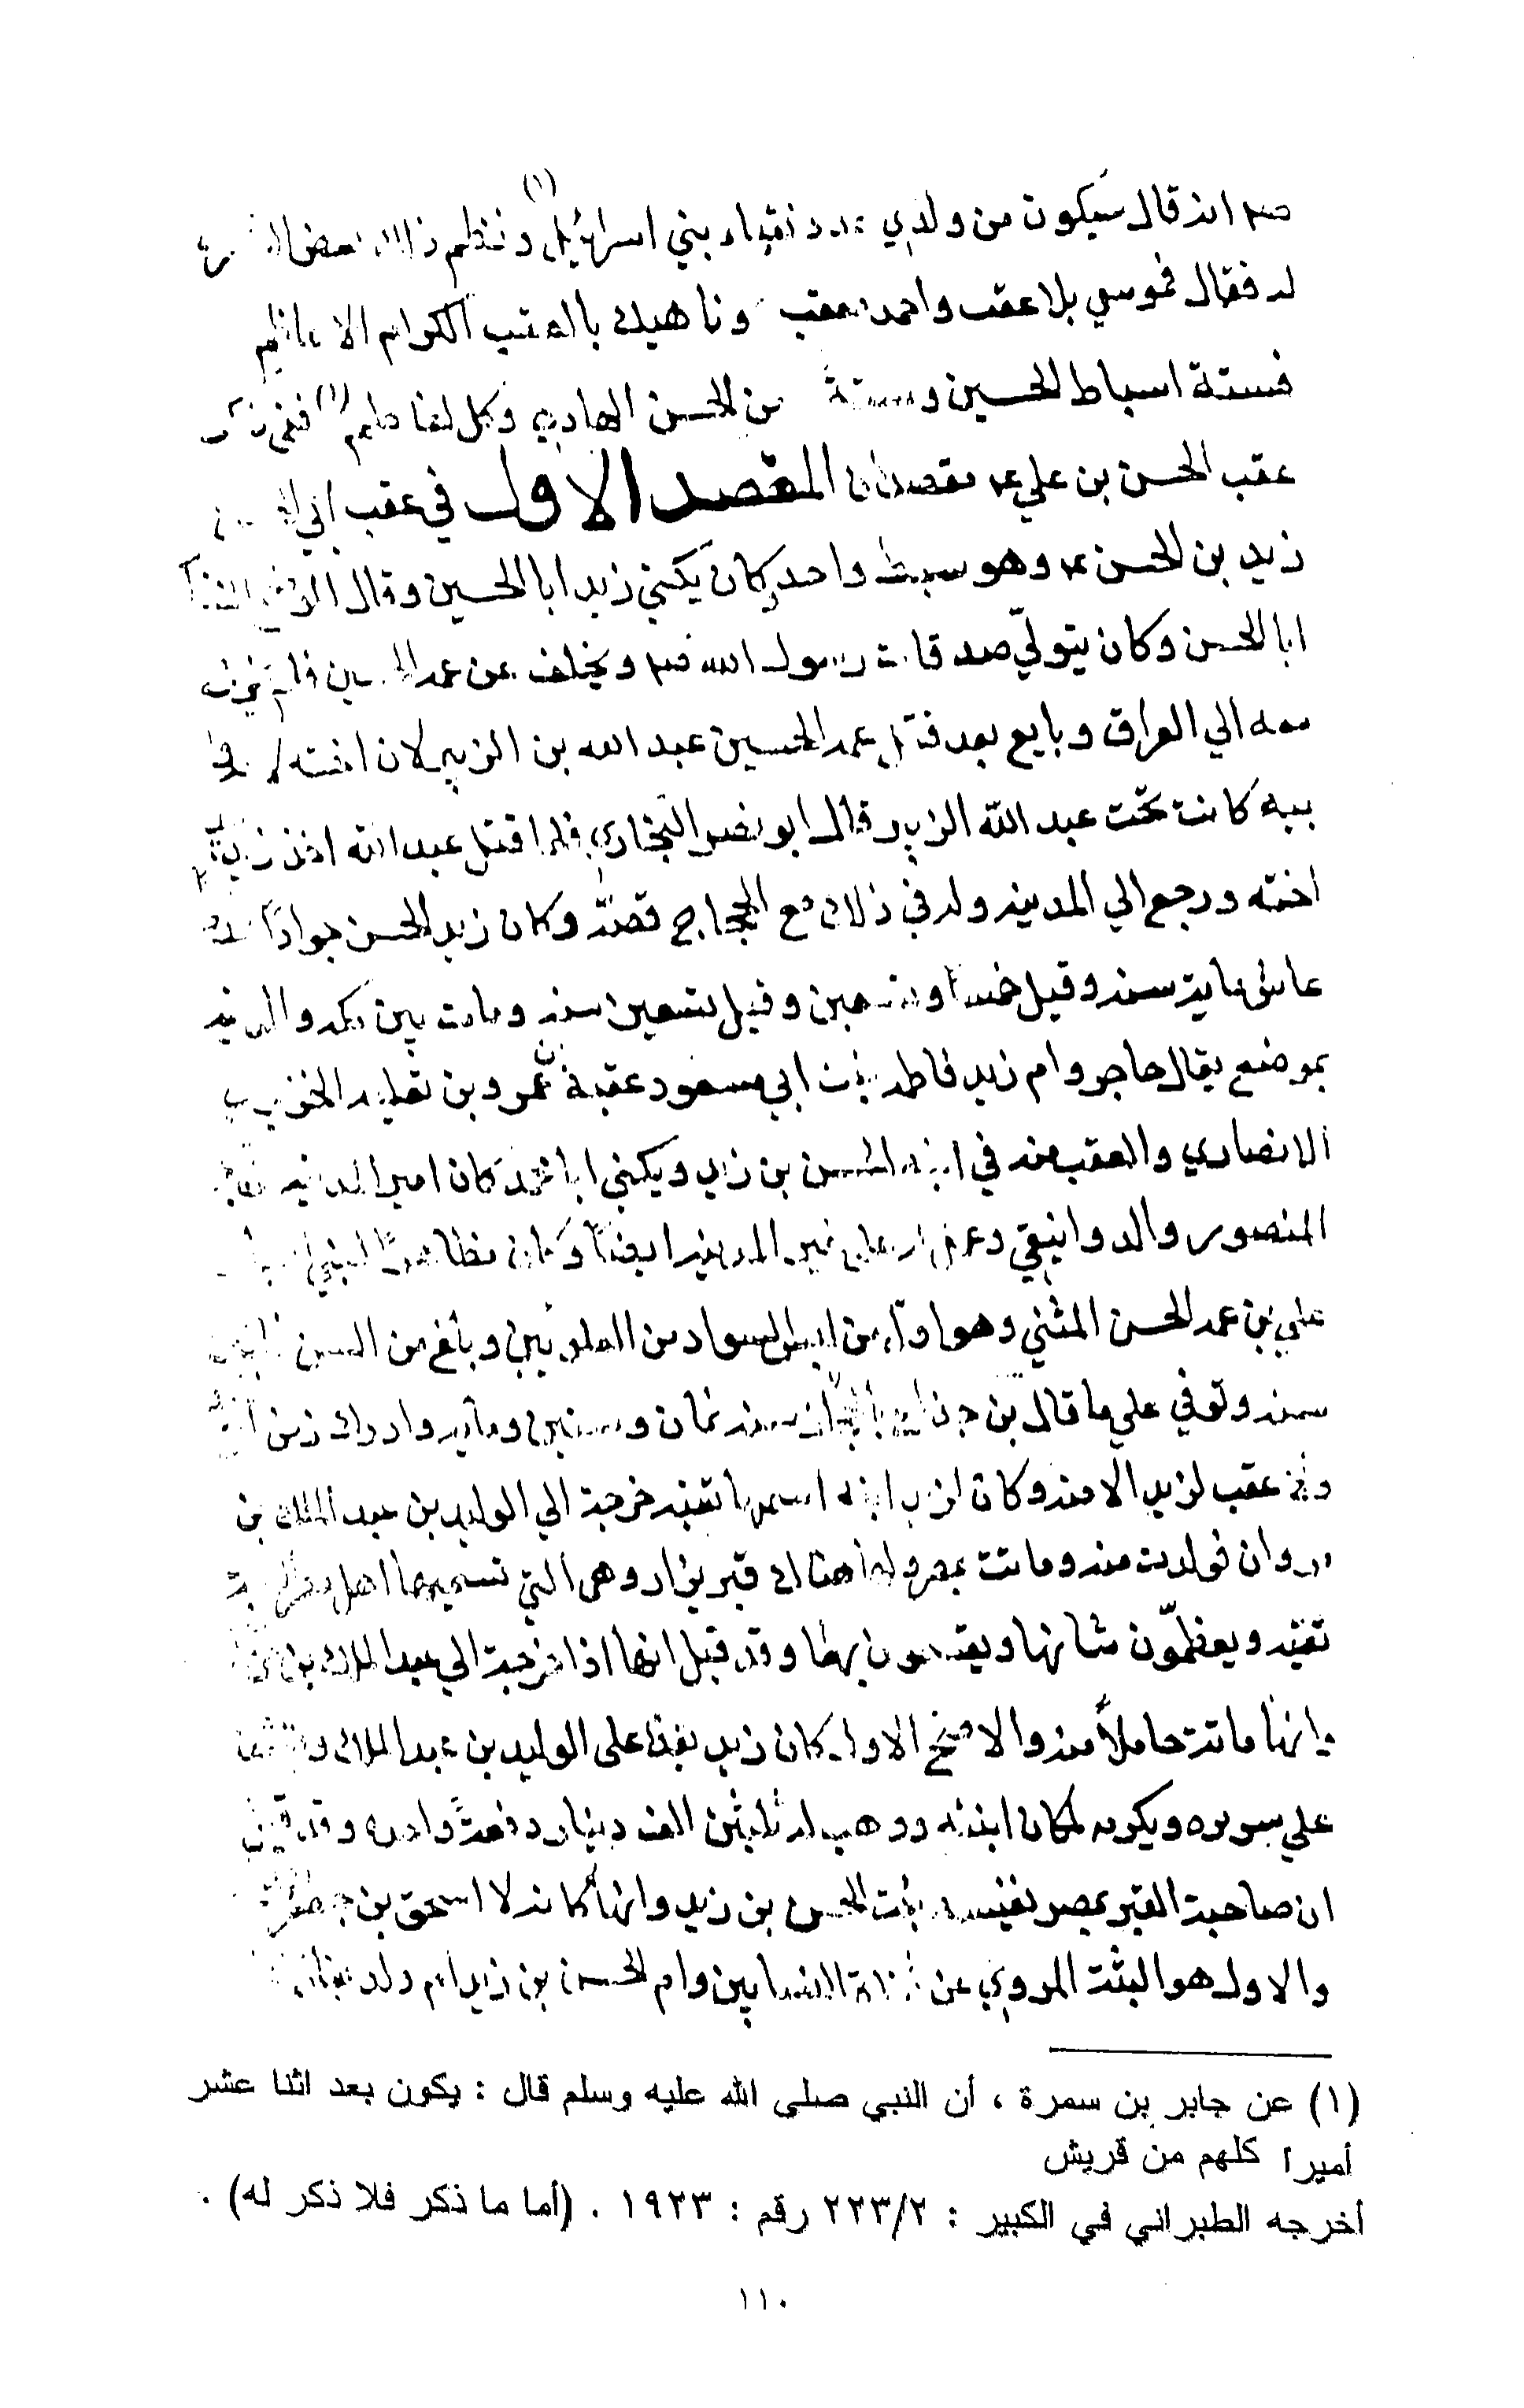 صم انه قال سيكون من ولدي عدد نقباء بني اسرائيل (١) ونظم ذلك بعض
له فقال فموسي بلا عقب واحمد معقب وناهيك بالعقب الكرام الاعاظم
فستة اسباط الحسين وستة من الحسن الهادي وكل لفاطم (١) ففي ذكر
عقب الحسن بن علي عم مقصدان المقصد الاول في عقب ابي
زيد بن الحسن عم وهو سبط واحد وكان يكني زيد ابا الحسين وقال
ابا الحسن وكان يتولّي صدقات رسول الله صم وتخلف عن عمه الحسين فلم يخرج
معه الي العراق وبايع بعد قتل عمه الحسين عبد الله بن الزبير لان اخته
بيه كانت تحت عبد الله الزبير قال ابو نصر البخاري فلما قتل عبد الله اخذ زيد
اخته ورجع الي المدينه وله في ذلك مع الحجاج قصة وكان زيد الحسن جوادًا
عاش مايه سنه وقيل خمسا وتسعين وقيل تسعين سنه ومات بين مكه والمدينه
بموضع يقال حاجر وام زيد فاطمه بنت ابي مسعود عقبة بن عمرو بن ثعلبه
الانصاري والعقب منه في ابنه الحسن بن زيد ويكني ابا محمد كان امير المدينه
المنصور والدوانيقي وعمل له علي غير المدينه ايضًا وكان مظاهرًا لبني
علي بن عمه الحسن المثني وهو اول من لبس السواد من العلويين وبلغ من السن
سنه وتوفي علي ما قال بن سنه ثمان وستين ومايه وادرك زمن
ولا عقب لزيد الا منه وكان لزيد ابنه اسمها نفيسه خرجة الي الوليد بن عبد الملك بن
مروان فولدت منه وماتت بمصر ولها هناك قبر يزار وهي التي تسميها اهل
نفيسه ويعظمّون شانها ويقسمون بها وقد قيل انها اذا خرجة الي عبد الملك بن
وانها ماتة حاملاً منه والاصح الاول وكان زيد يفد على الوليد بن عبد الملك
علي سريره ويكرمه لمكان ابنته ووهب له ثلثين الف دينار دفعةً واحده وقد قيل
ان صاحبة القبر بمصر نفيسه بنت الحسن بن زيد وانها كانت لا اسحق بن جعفر
والاول هو الثبت المروي عن ثقاة النسابين وام الحسن بن زيد ام ولد
(١) عن جابر بن سمرة ، أن النبي صلى الله عليه وسلم قال : يكون بعد اثنا عشر
أميرا كلهم من قريش
أخرجه الطبراني في الكبير : ٢٢٣/٢ رقم : ١٩٢٣ . (أما ما ذكر فلا ذكر له) .
١١٠